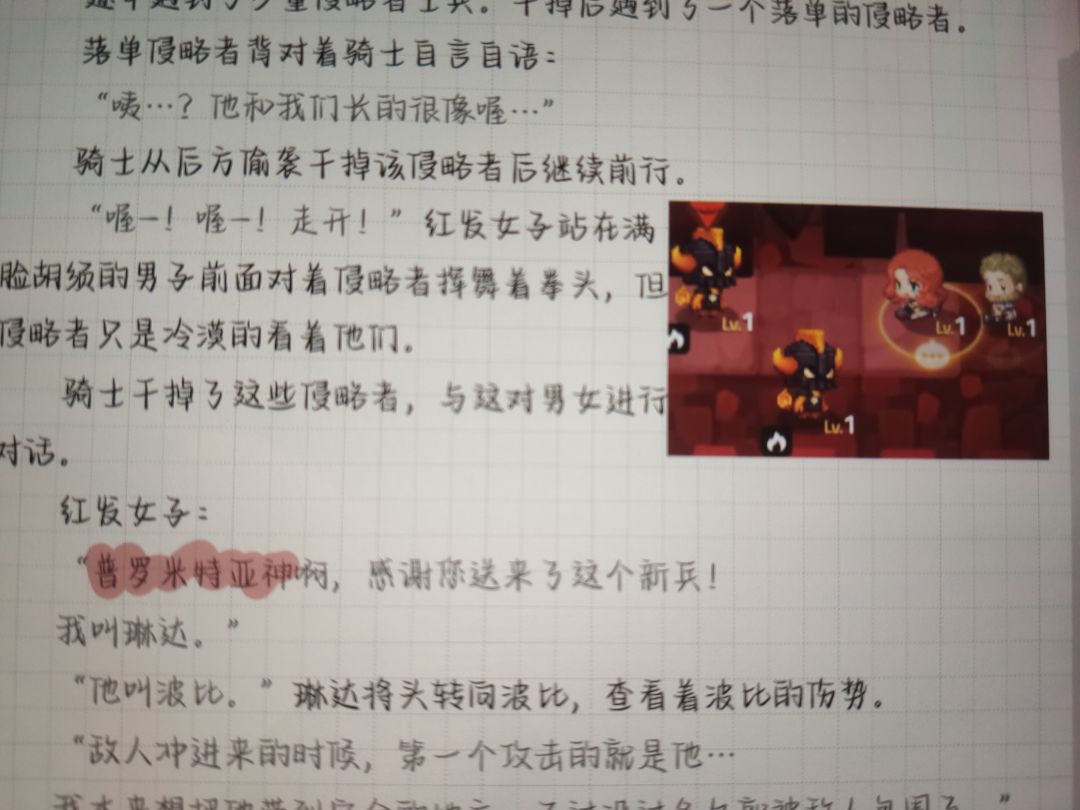 途中遇到了少量侵略者士兵。干掉后遇到了一个落单的侵略者。
落单侵略者背对着骑士自言自语：
“咦…？他和我们长的很像喔…”
骑士从后方偷袭干掉该侵略者后继续前行。
“喔一！喔一！走开！”红发女子站在满
脸胡须的男子前面对着侵略者挥舞着拳头，但
侵略者只是冷漠的看着他们。
骑士干掉了这些侵略者，与这对男女进行
对话。
Lv.1
Lv.1
Lv.1
Lv.1
红发女子：
“普罗米特亚神啊，感谢您送来了这个新兵！
我叫琳达。”
“他叫波比。”琳达将头转向波比，查看着波比的伤势。
“敌人冲进来的时候，第一个攻击的就是他…
我本来想把他带到安全的地方，不过没过多久就被敌人包围了…”